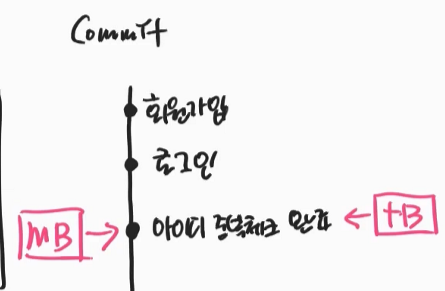 Commit
회원가입
로그인
MB → 아이디 중복체크 완료 ← tB